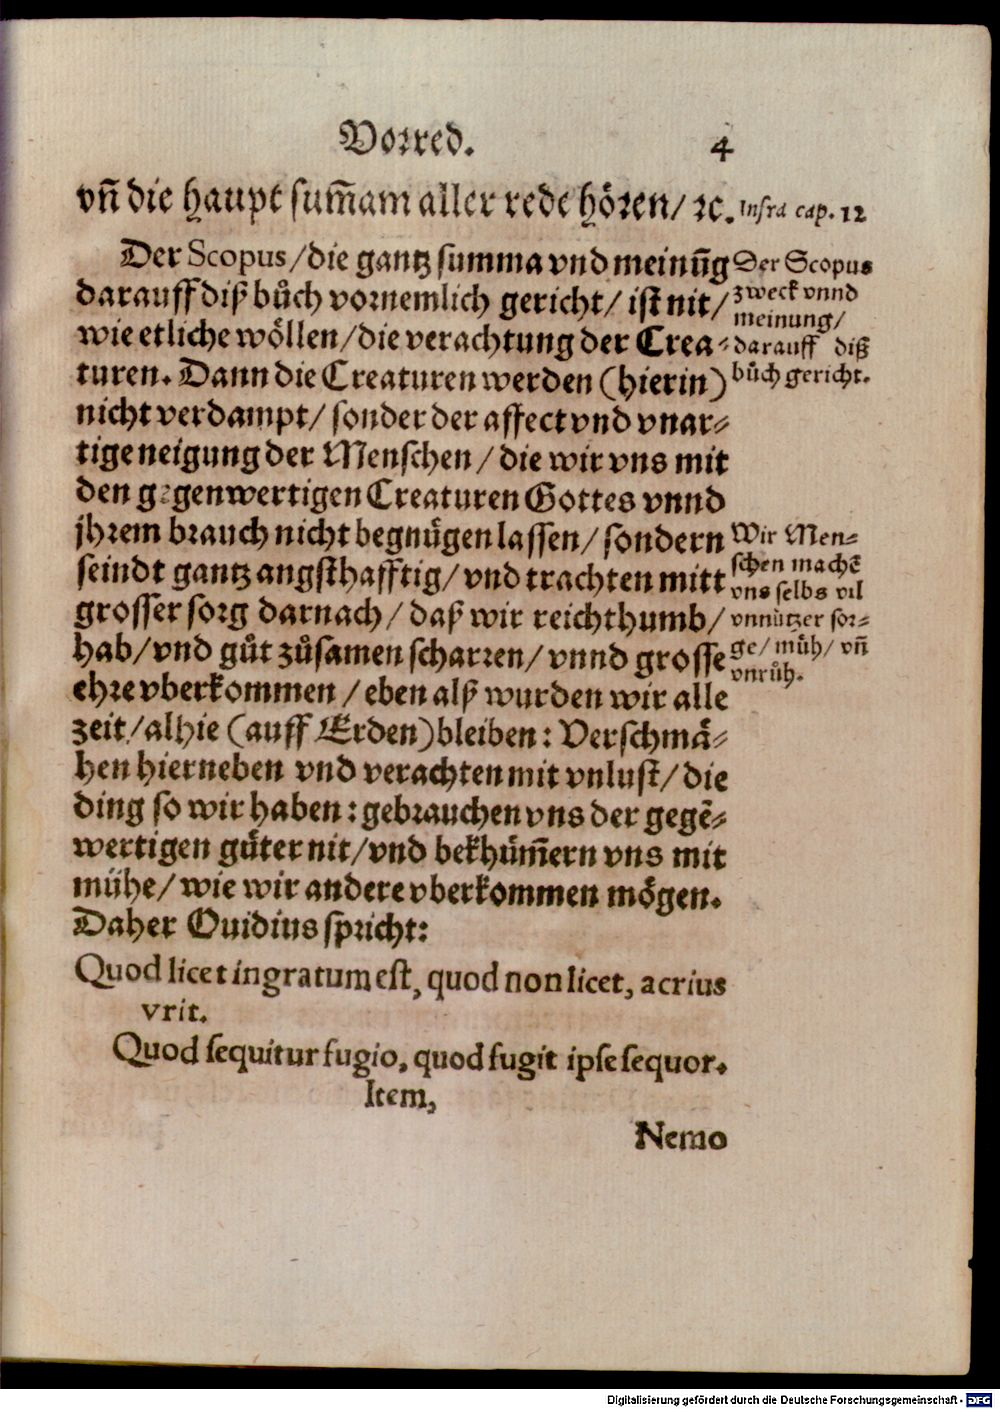 Vorred. 4
vñ die haupt sum̃am aller rede hoͤren/ ꝛc.
Infra cap. 12
Der Scopus/die gantz summa vnd meinũg
darauff diß buͦch vornemlich gericht/ ist nit/
wie etliche woͤllen/die verachtung der Crea⸗
turen. Dann die Creaturen werden (hierin)
nicht verdampt/ sonder der affect vnd vnar⸗
tige neigung der Menschen/die wir vns mit
den gegenwertigen Creaturen Gottes vnnd
jhrem brauch nicht begnuͤgen lassen/ sondern
seindt gantz angsthafftig/ vnd trachten mitt
grosser sorg darnach/ daß wir reichthumb/
hab/vnd guͦt zuͦsamen scharren/ vnnd grosse
ehre vberkommen /eben alß wurden wir alle
zeit/alhie (auff Erden)bleiben: Verschmaͤ⸗
hen hierneben vnd verachten mit vnlust/ die
ding so wir haben: gebrauchen vns der gegẽ⸗
wertigen guͤter nit/vnd bekhuͤm̃ern vns mit
muͤhe/ wie wir andere vberkommen moͤgen.
Daher Ouidius spricht:
Quod licet ingratum est, quod non licet, acrius
vrit.
Quod sequitur fugio, quod fugit ipse sequor.
Item,
Nemo
Der Scopus
zweck vnnd
meinung/
darauff diß
buͦch gericht.
Wir Men⸗
schen machẽ
vns selbs vil
vnnuͤtzer sor⸗
ge/ muͤh/ vñ
vnruͦh.
Digitalisierung gefördert durch die Deutsche Forschungsgemeinschaft - DFG